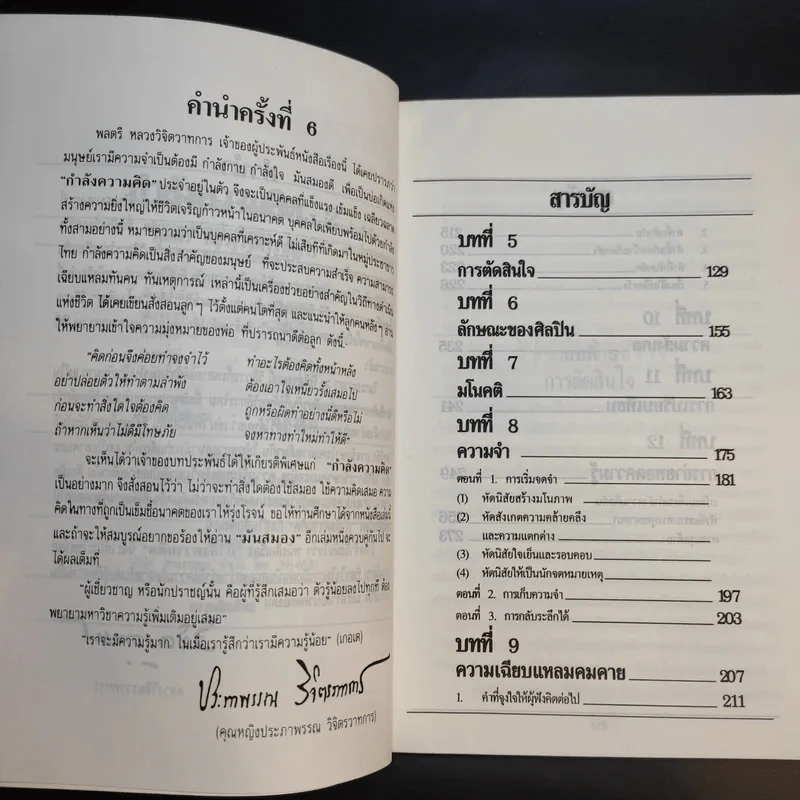 คำนำครั้งที่ 6
พลตรี หลวงวิจิตวาทการ เจ้าของผู้ประพันธ์หนังสือเรื่องนี้ ได้เคยปรารภว่า
มนุษย์เรามีความจำเป็นต้องมี กำลังกาย กำลังใจ มันสมองดี เพื่อเป็นบ่อเกิดแห่ง
"กำลังความคิด" ประจำอยู่ในตัว จึงจะเป็นบุคคลที่แข็งแรง เข้มแข็ง เฉลียวฉลาด
สร้างความยิ่งใหญ่ให้ชีวิตเจริญก้าวหน้าในอนาคต บุคคลใดเพียบพร้อมไปด้วยกำลัง
ทั้งสามอย่างนี้ หมายความว่าเป็นบุคคลที่เคราะห์ดี ไม่เสียทีที่เกิดมาในหมู่ประชาชาว
ไทย กำลังความคิดเป็นสิ่งสำคัญของมนุษย์ ที่จะประสบความสำเร็จ ความสามารถ
เฉียบแหลมทันคน ทันเหตุการณ์ เหล่านี้เป็นเครื่องช่วยอย่างสำคัญในวิถีทางดำเนิน
แห่งชีวิต ได้เคยเขียนสั่งสอนลูกๆ ไว้ตั้งแต่คนโตที่สุด และแนะนำให้ลูกคนหลังๆ อ่าน
ให้พยายามเข้าใจความมุ่งหมายของพ่อ ที่ปรารถนาดีต่อลูก ดังนี้.
"คิดก่อนจึงค่อยทำจงจำไว้ ทำอะไรต้องคิดทั้งหน้าหลัง
อย่าปล่อยตัวให้ทำตามลำพัง ต้องเอาใจเหนี่ยวรั้งเสมอไป
ก่อนจะทำสิ่งใดใจต้องคิด ถูกหรือผิดทำอย่างนี้ดีหรือไม่
ถ้าหากเห็นว่าไม่ดีมีโทษภัย จงหาทางทำใหม่ทำให้ดี"
จะเห็นได้ว่าเจ้าของบทประพันธ์ได้ให้เกียรติพิเศษแก่ "กำลังความคิด"
เป็นอย่างมาก จึงสั่งสอนไว้ว่า ไม่ว่าจะทำสิ่งใดต้องใช้สมอง ใช้ความคิดเสมอ ความ
คิดในทางที่ถูกเป็นเข็มชี้อนาคตของเราให้รุ่งโรจน์ ขอให้ท่านศึกษาได้จากหนังสือเล่มนี้
และถ้าจะให้สมบูรณ์อยากขอร้องให้อ่าน "มันสมอง" อีกเล่มหนึ่งควบคู่กันไป จะ
ได้ผลเต็มที่
"ผู้เชี่ยวชาญ หรือนักปราชญ์นั้น คือผู้ที่รู้สึกเสมอว่า ตัวรู้น้อยลงไปทุกที ต้อง
พยายามหาวิชาความรู้เพิ่มเติมอยู่เสมอ"
"เราจะมีความรู้มาก ในเมื่อเรารู้สึกว่าเรามีความรู้น้อย" (เกอเต)
ประภาพรรณ วิจิตรวาทการ
(คุณหญิงประภาพรรณ วิจิตรวาทการ)
สารบัญ
บทที่ 5
การตัดสินใจ 129
บทที่ 6
ลักษณะของศิลปิน 155
บทที่ 7
มโนคติ 163
บทที่ 8
ความจำ 175
ตอนที่ 1. การเริ่มจดจำ 181
(1) หัดนิสัยสร้างมโนภาพ
(2) หัดสังเกตความคล้ายคลึง
และความแตกต่าง
(3) หัดนิสัยใจเย็นและรอบคอบ
(4) หัดนิสัยให้เป็นนักจดหมายเหตุ
ตอนที่ 2. การเก็บความจำ 197
ตอนที่ 3. การกลับระลึกได้ 203
บทที่ 9
ความเฉียบแหลมคมคาย 207
1. คำที่จูงใจให้ผู้ฟังคิดต่อไป 211